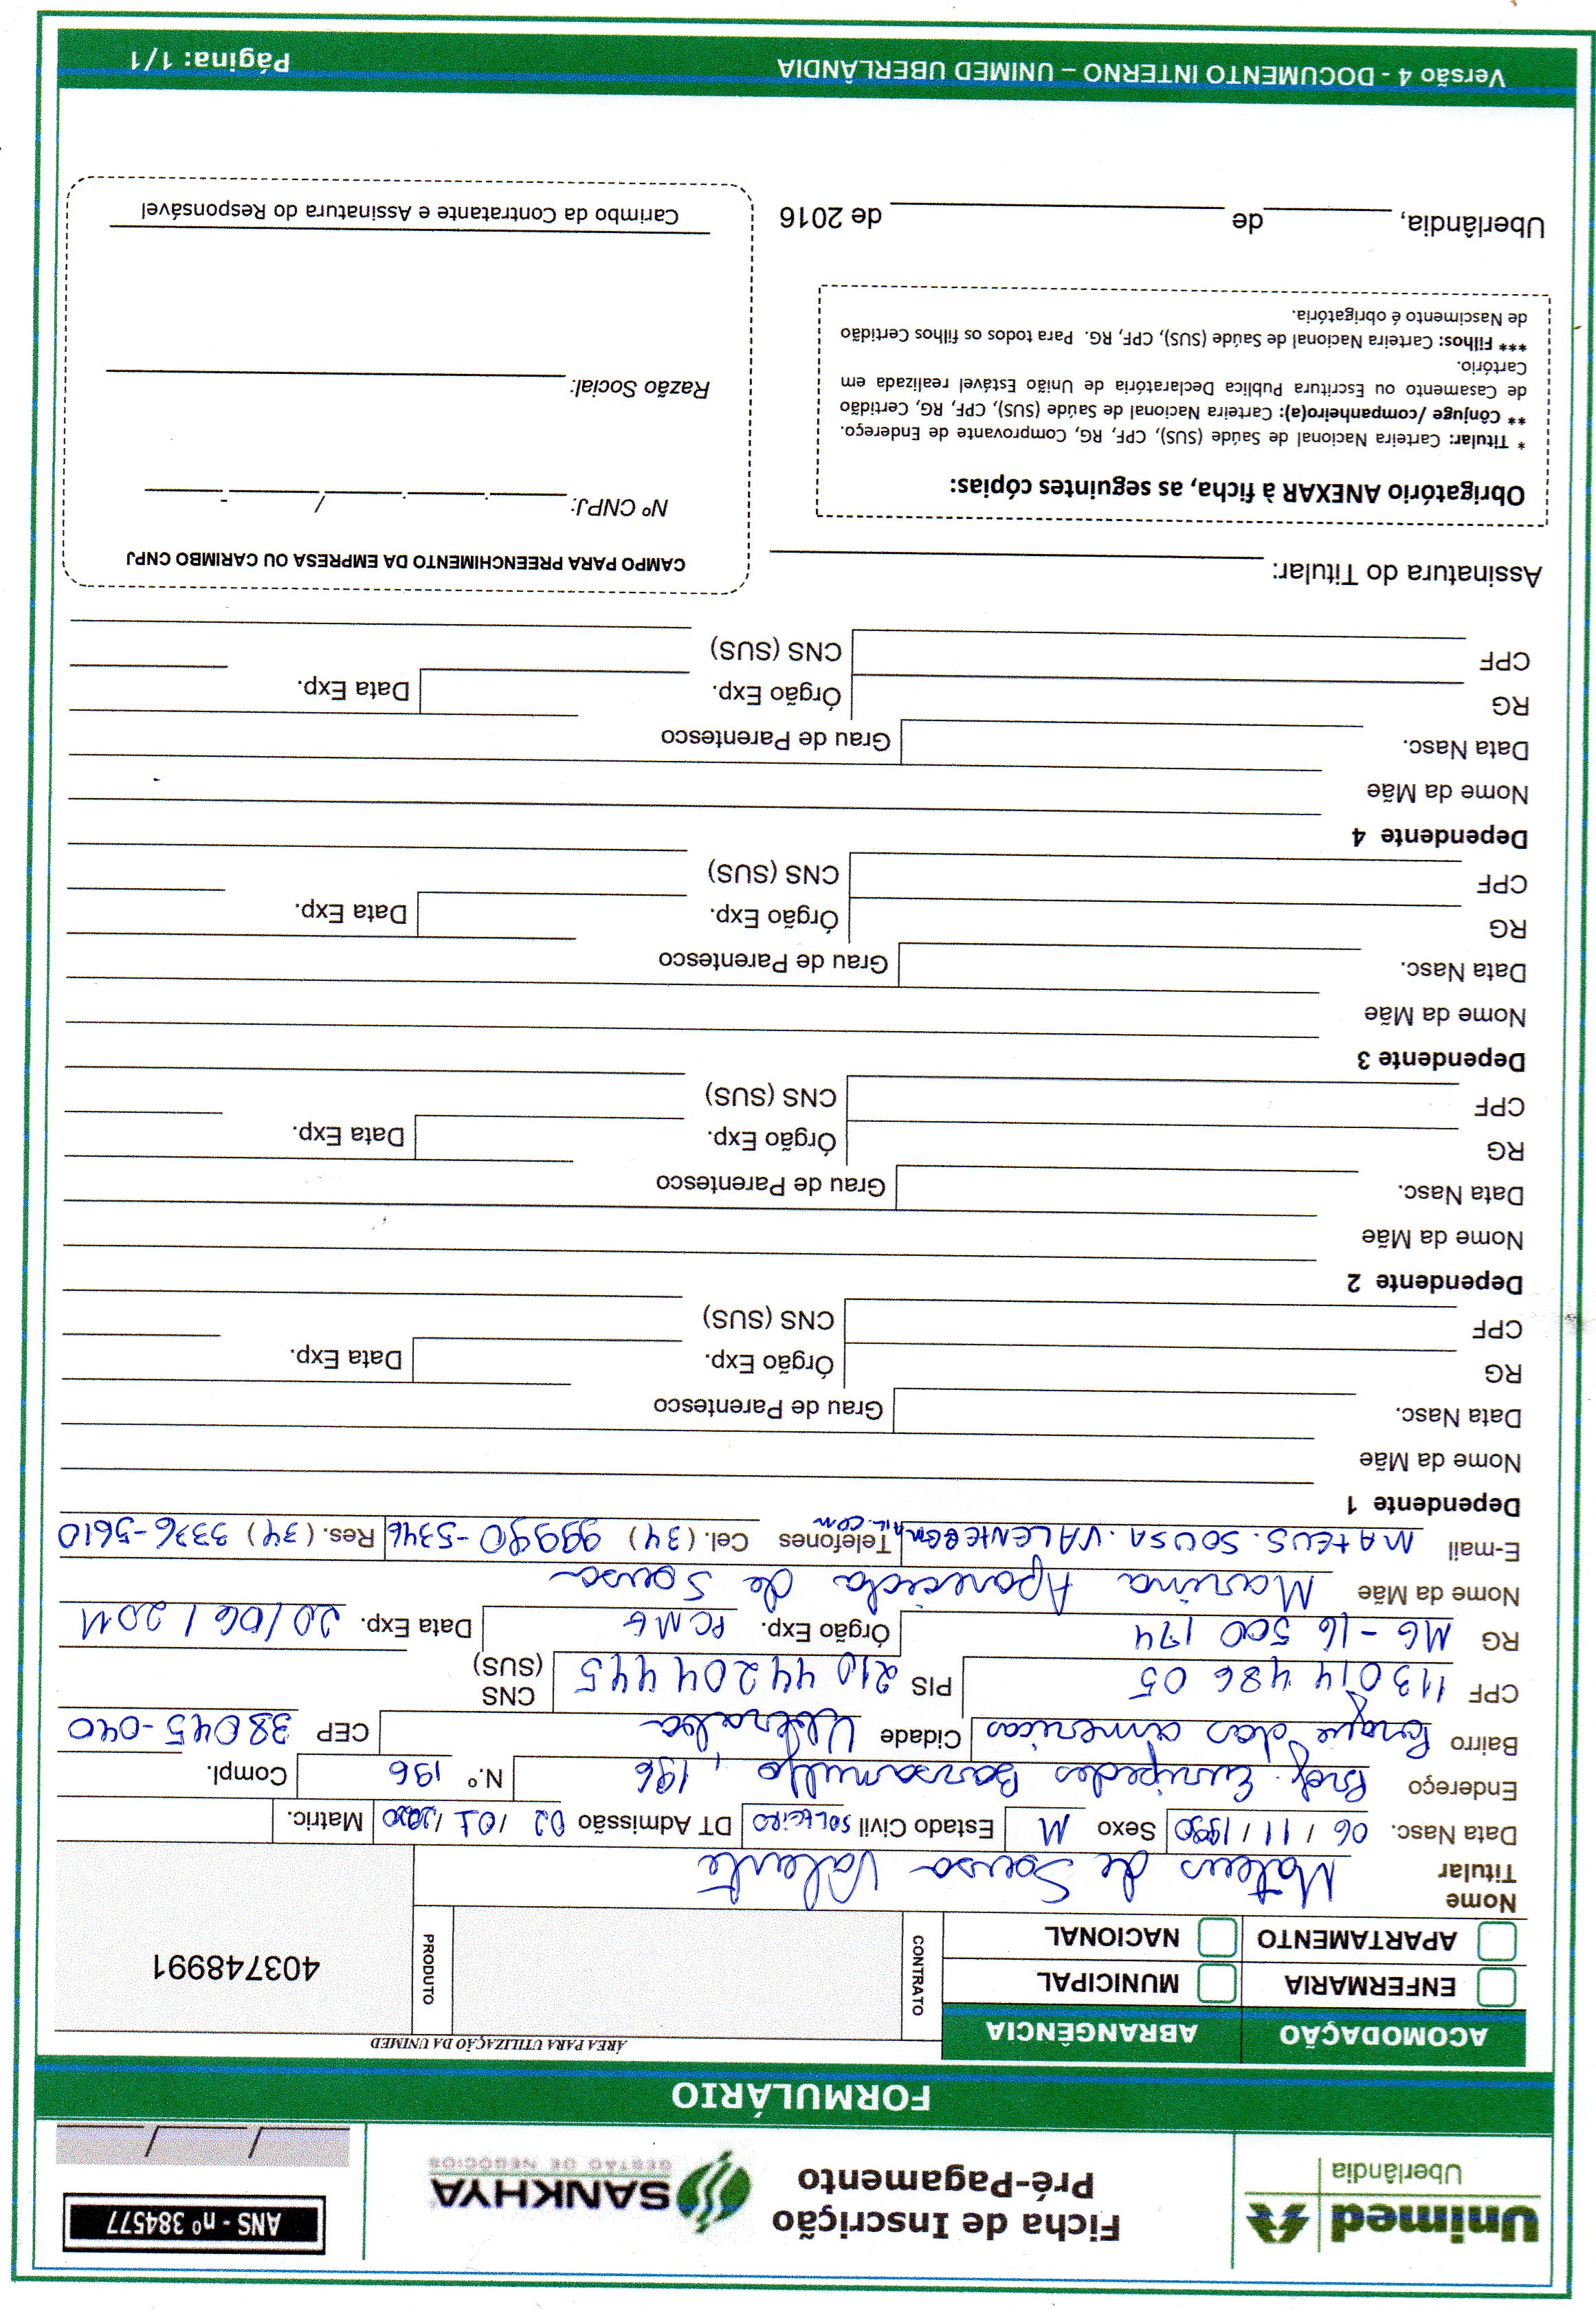 Unimed
Uberlândia
Ficha de Inscrição
Pré-Pagamento
SANKHYA
GESTÃO DE NEGÓCIOS
ANS - nº 384577
____/____/____
FORMULÁRIO
ACOMODAÇÃO ABRANGÊNCIA
ÁREA PARA UTILIZAÇÃO DA UNIMED
ENFERMARIA MUNICIPAL
APARTAMENTO NACIONAL
CONTRATO
PRODUTO
403748991
Nome Titular Mateus de Sousa Valente
Data Nasc. 06 / 11 / 1990 Sexo M Estado Civil SOLTEIRO DT Admissão 02 / 01 / 2020 Matric.
Endereço Prof. Euripedes Barsanulfo , 196 N.º 196 Compl.
Bairro Parque das americas Cidade Uberaba CEP 38045-040
CPF 113 014 486 05 PIS 210 44204 445 CNS (SUS)
RG MG -16 500 174 Órgão Exp. PCMG Data Exp. 20/06/2011
Nome da Mãe Marina Aparecida de Sousa
E-mail MATEUS.SOUSA.VALENTE@GMAIL.COM Telefones Cel. (34) 99990-5346 Res. (34) 3336-5610
Dependente 1
Nome da Mãe
Data Nasc. Grau de Parentesco
RG Órgão Exp. Data Exp.
CPF CNS (SUS)
Dependente 2
Nome da Mãe
Data Nasc. Grau de Parentesco
RG Órgão Exp. Data Exp.
CPF CNS (SUS)
Dependente 3
Nome da Mãe
Data Nasc. Grau de Parentesco
RG Órgão Exp. Data Exp.
CPF CNS (SUS)
Dependente 4
Nome da Mãe
Data Nasc. Grau de Parentesco
RG Órgão Exp. Data Exp.
CPF CNS (SUS)
Assinatura do Titular:
Obrigatório ANEXAR à ficha, as seguintes cópias:
* Titular: Carteira Nacional de Saúde (SUS), CPF, RG, Comprovante de Endereço.
** Cônjuge /companheiro(a): Carteira Nacional de Saúde (SUS), CPF, RG, Certidão
de Casamento ou Escritura Publica Declaratória de União Estável realizada em
Cartório.
*** Filhos: Carteira Nacional de Saúde (SUS), CPF, RG. Para todos os filhos Certidão
de Nascimento é obrigatória.
Uberlândia, ________de ________________ de 2016
CAMPO PARA PREENCHIMENTO DA EMPRESA OU CARIMBO CNPJ
Nº CNPJ: _____._____._____/_____-_____
Razão Social:
Carimbo da Contratante e Assinatura do Responsável
Versão 4 - DOCUMENTO INTERNO – UNIMED UBERLÂNDIA
Página: 1/1